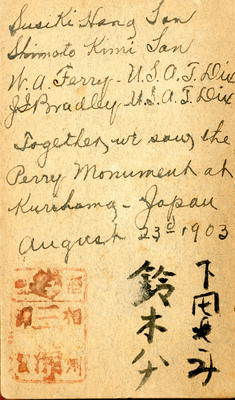 Susuki Hang San
Shimoto Kimi San
W. A. Ferry - U.S.A.T. Dix
J S Bradley - U.S.A.T. Dix
Together, we saw, the
Perry Monument at
Kurihama - Japan
August 23d 1903
下田
鈴木